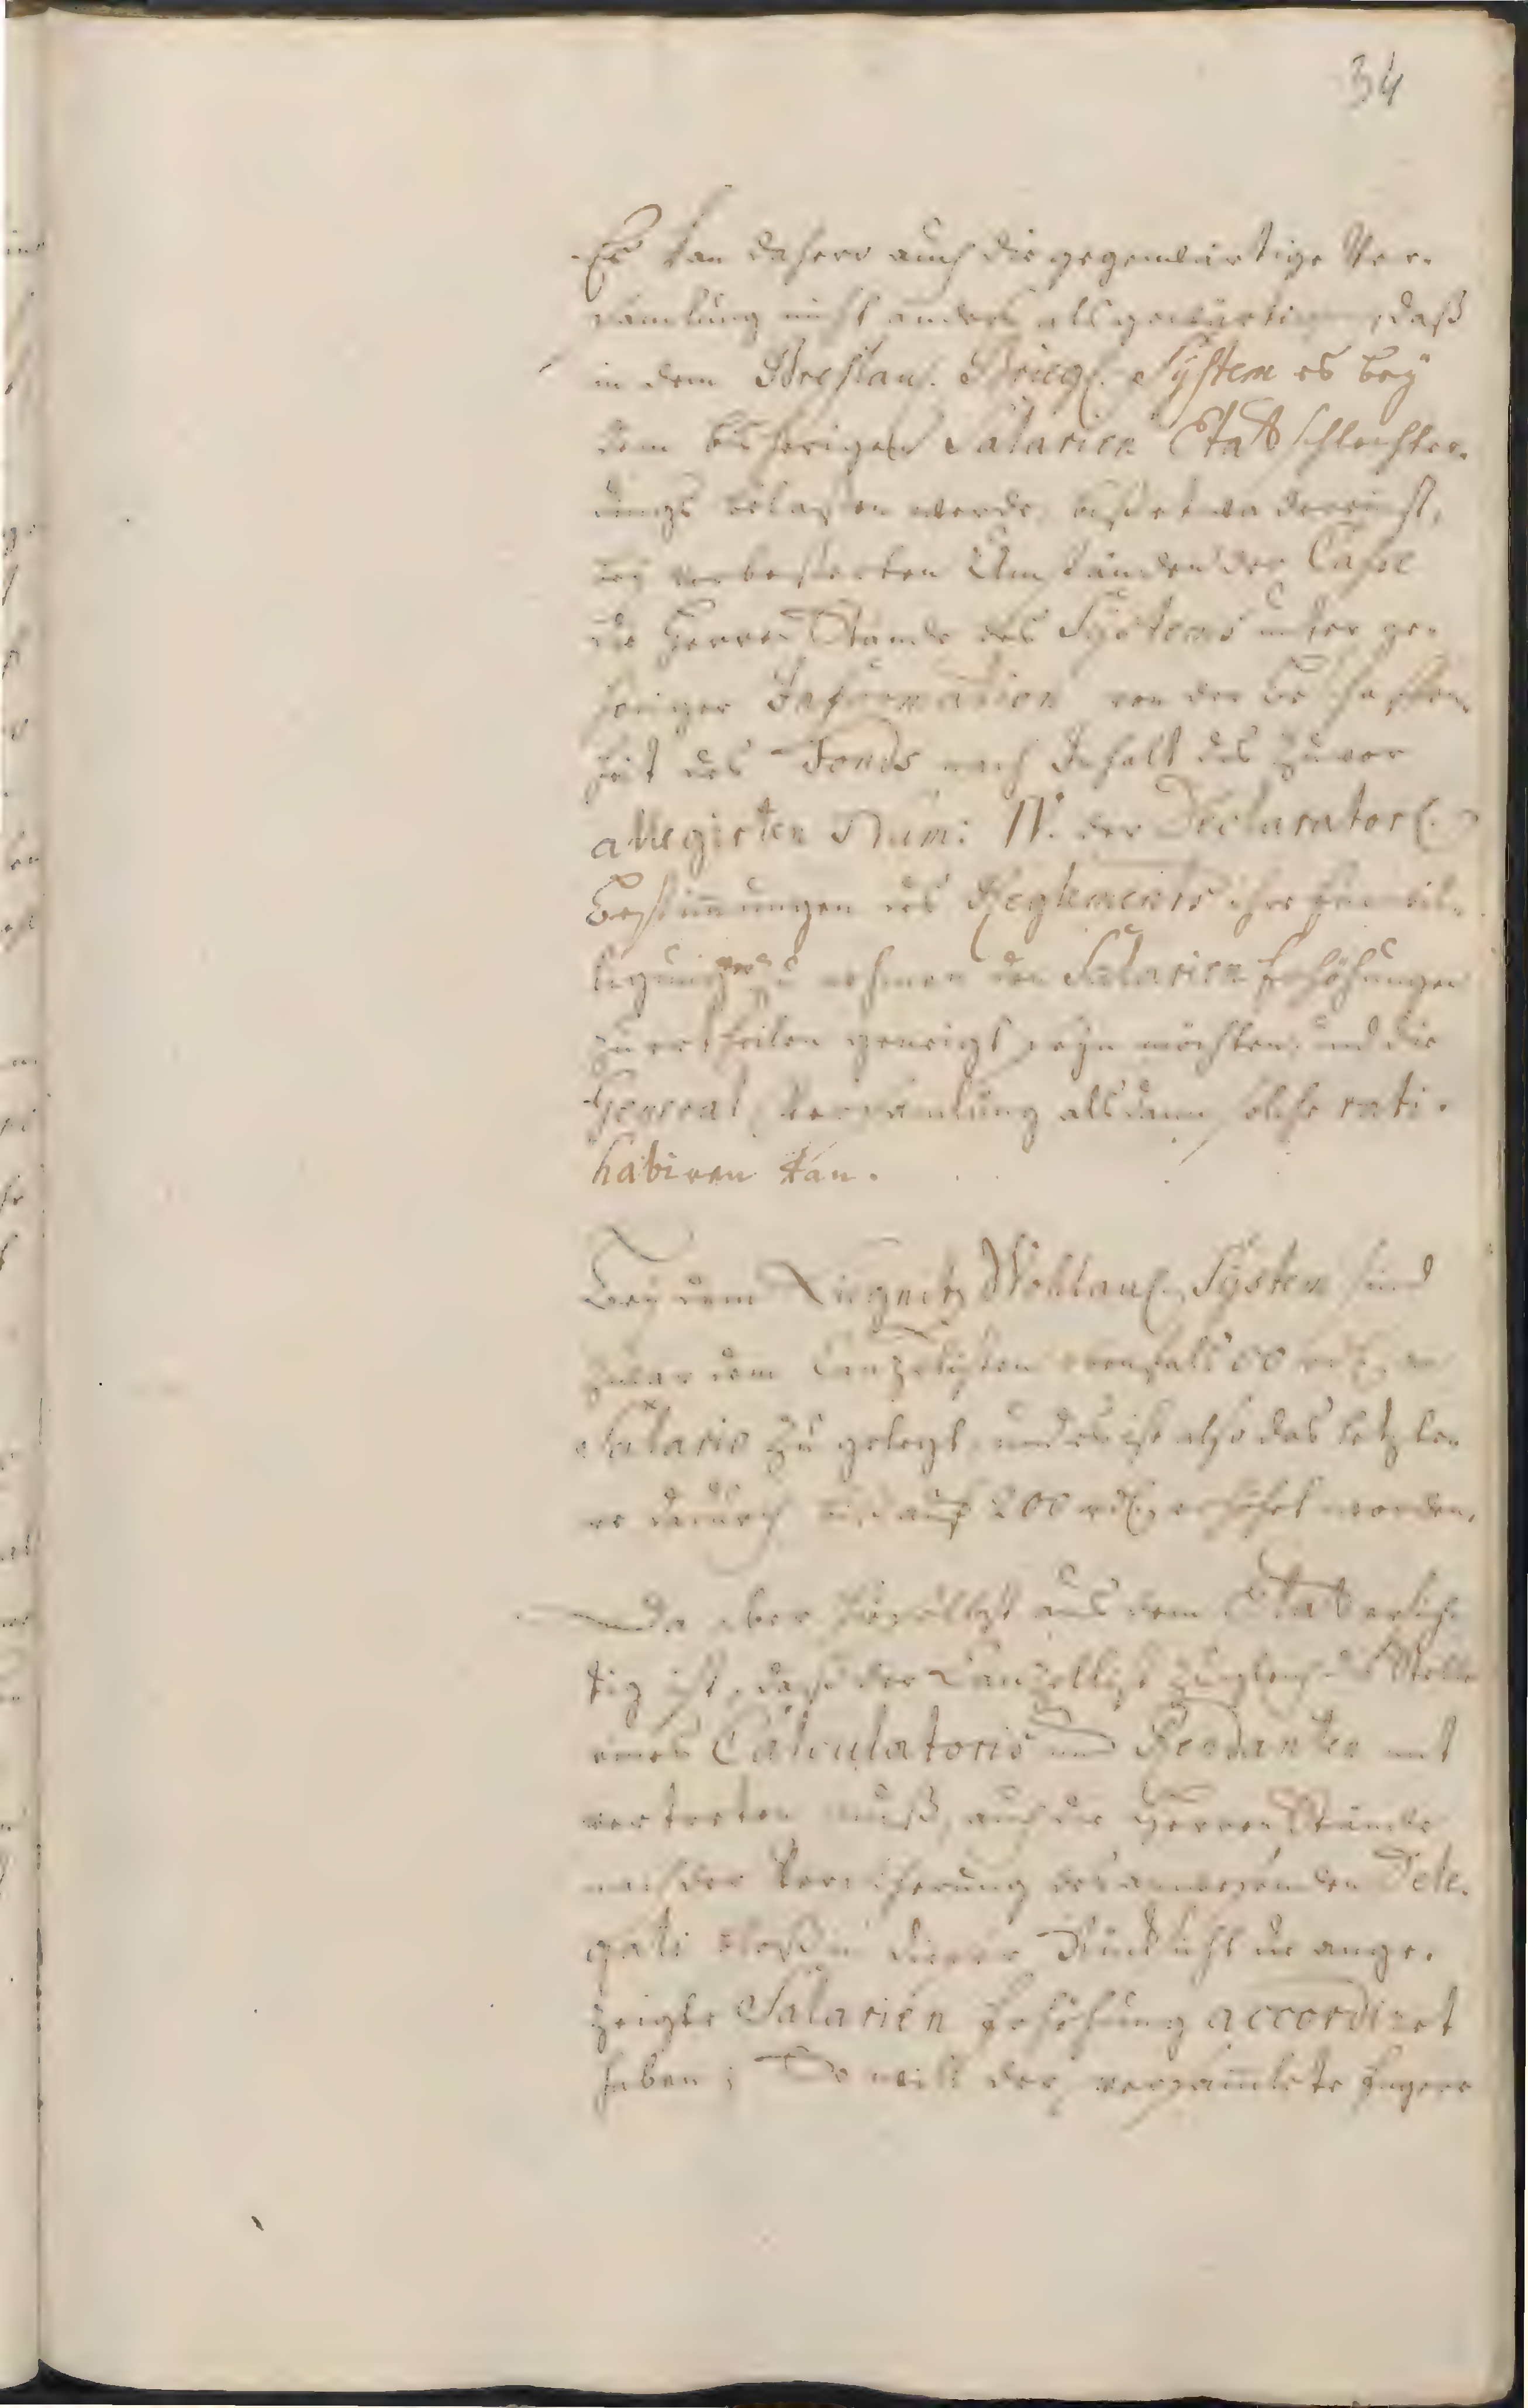 34
Es kan dahero auch die gegenwärtige Ver-
samlung nicht anders als gewärtigen, daß
in dem Breslau. Brieg. System es bey
dem bisherigen Salarien Etat schlechter-
dings belaßen werde, biß etwa dereinst,
bey verbeßerten Umständen der Casse
die Herren Stände des Systems unter ge-
höriger Information von der Beschaffen-
heit des Fonds nach Inhalt des zuvor
allegirten Num: IV. der Declarator.
Bestimmungen des Reglements ihre Einwil-
ligung zu nehmen den Salarien Erhöhungen
zu ertheilen geneigt seyn möchten, und die
General Versamlung alsdann solche rati-
habiren kan.
Bey dem Liegnitz Wohlau. System sind
zwar dem Canzelisten ebenfalls rth. an
Salario zu gelegt, und es ist also das letzte-
re dadurch auf 200 rth. erhöhet worden.
Da aber zuvölligst aus dem Etat ersich-
tig ist, daß der Canzellist zugleich die Stelle
eines Calculatoris und Rendanten mit
vertreten muß, auch die Herren Stände
nach der Versicherung des anwesenden Dele-
gati bloß in dieser Rücksicht die ange-
zeigte Salarien Erhöhung accordiret
haben; So will der versammlete Engere